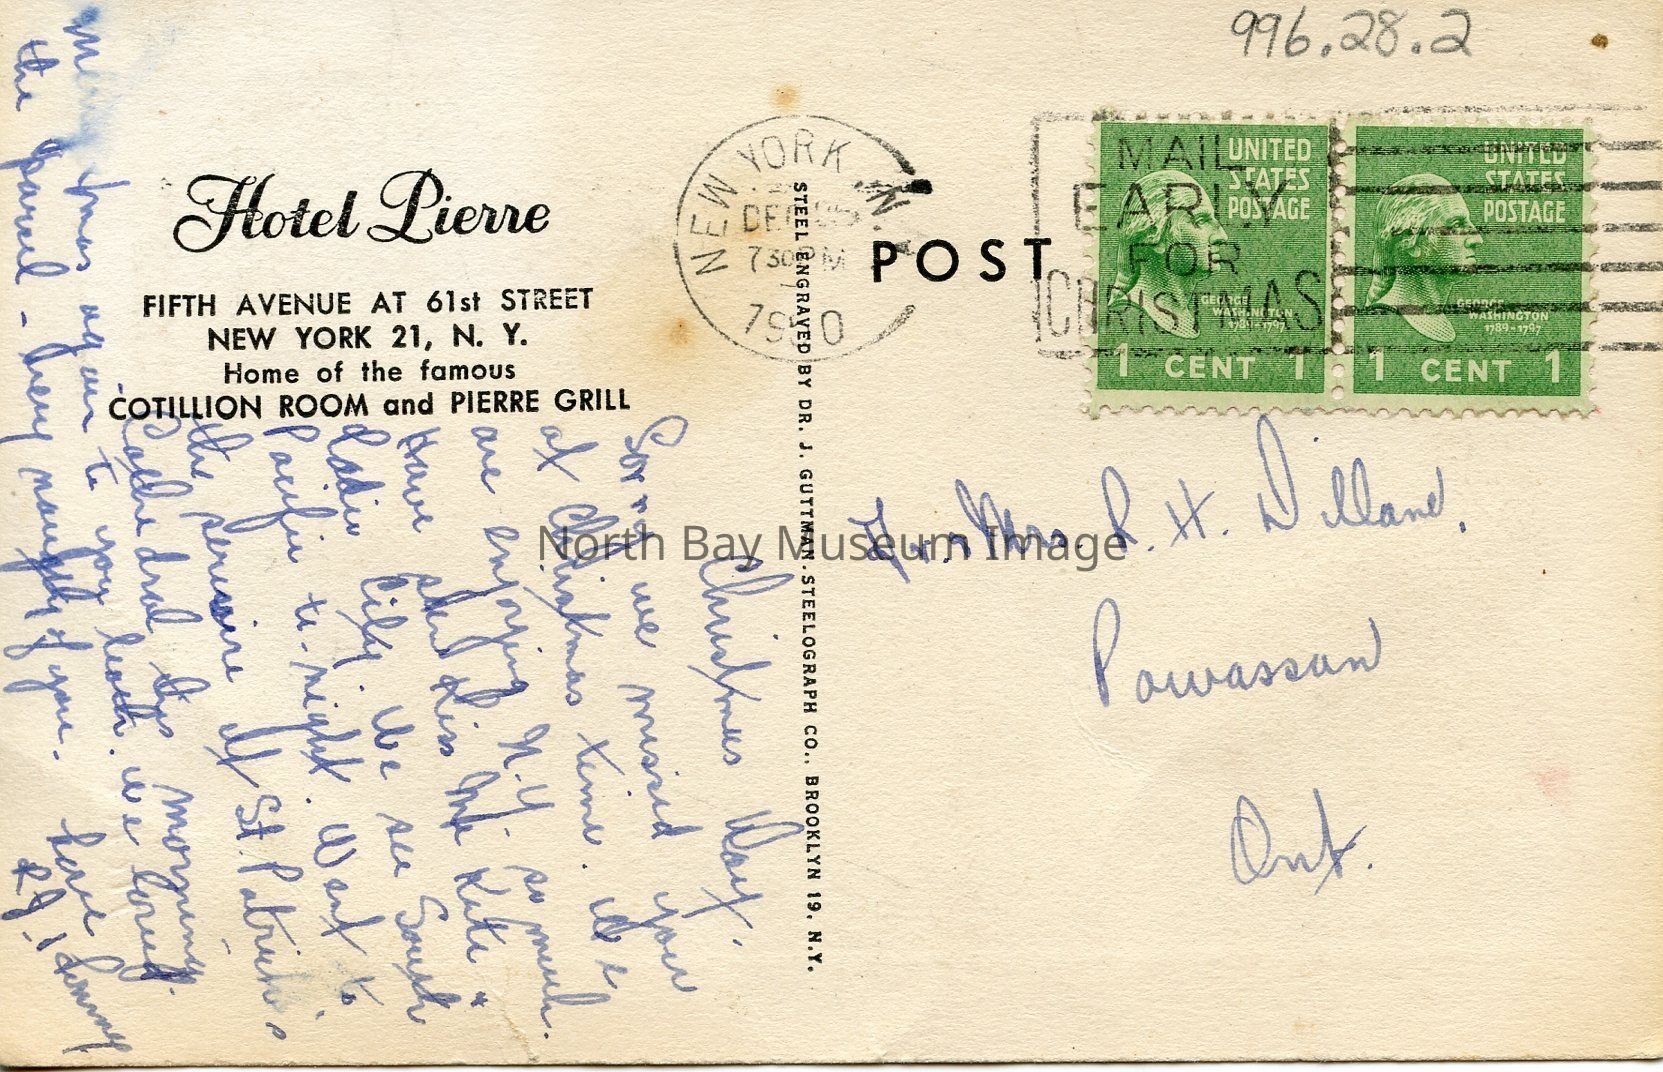 996.28.2
Hotel Pierre
FIFTH AVENUE AT 61st STREET
NEW YORK 21, N. Y.
Home of the famous
COTILLION ROOM and PIERRE GRILL
NEW YORK, N.
DEC
730 PM
1950
MAIL
EARLY
FOR
CHRISTMAS
UNITED
STATES
POSTAGE
GEORGE
WASHINGTON
1789-1797
1 CENT 1
UNITED
STATES
POSTAGE
GEORGE
WASHINGTON
1789-1797
1 CENT 1
POST
STEEL ENGRAVED BY DR. J. GUTTMAN. STEELOGRAPH CO., BROOKLYN 19, N.Y.
Mrs. R. H. Dillane,
Powassan
Ont.
Christmas Day.
Sorry we missed you
at Christmas time. We
are enjoying N.Y. so much.
Have seen Kiss Me Kate +
Radio City. We see South
Pacific to-night. Went to
the service at St. Patrick's
Cathedral this morning.
Merry Xmas again to you both. We loved
the parcel - very naughty of you. Love
North Bay Museum Image